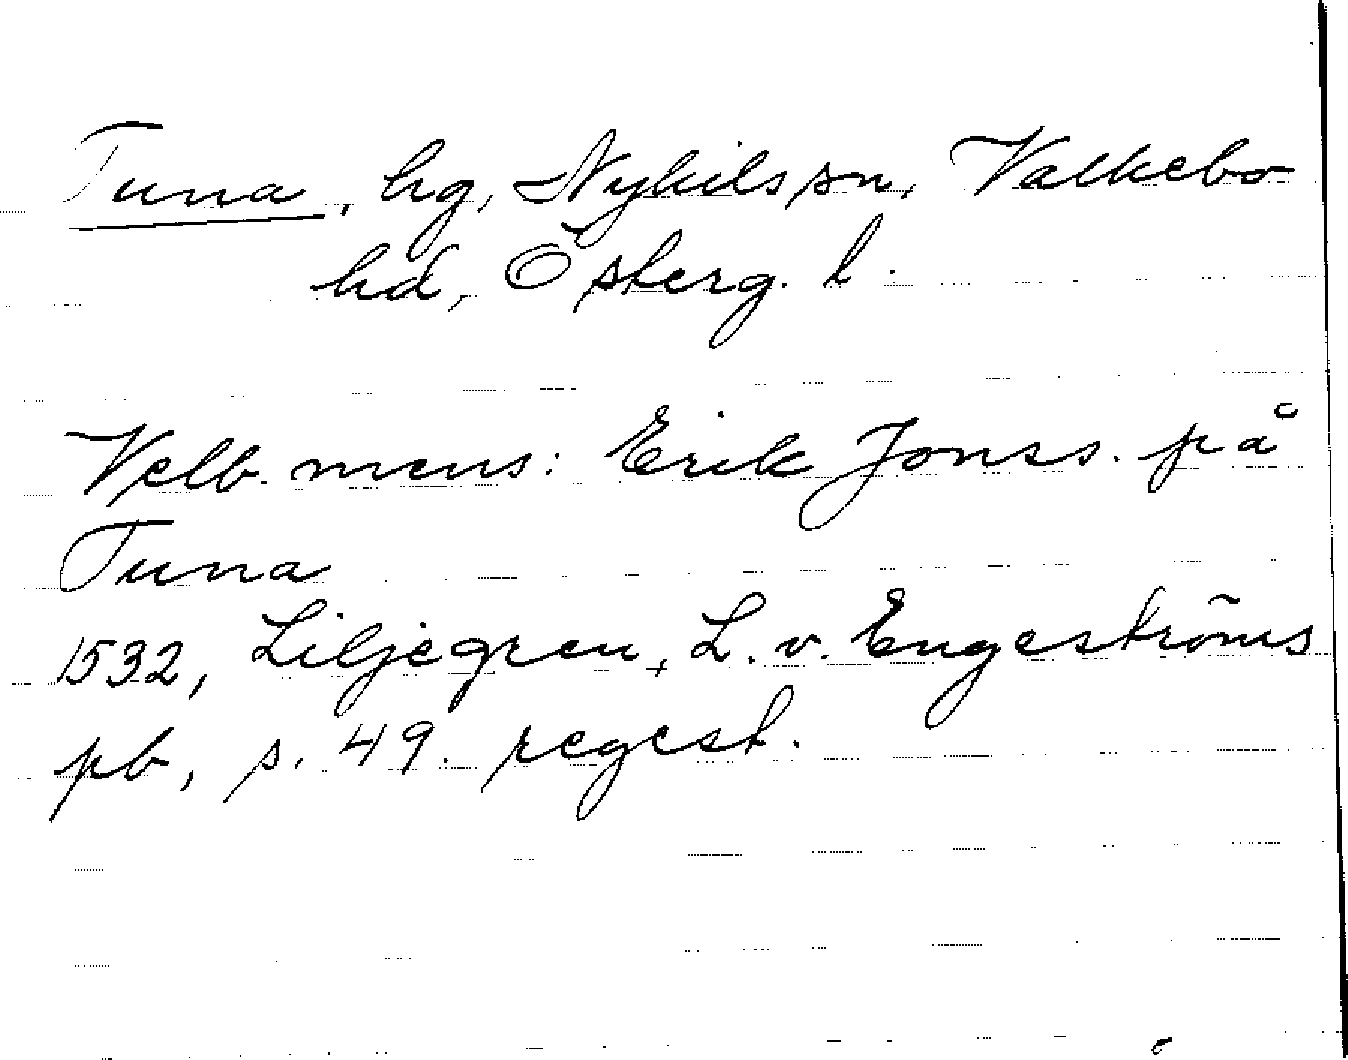 Tuna, hg, Nykils sn, Valkebo
hd, Österg. l.
Velb. mens: Erik Jonss. på
Tuna
1532, Liljegren, L. v. Engeströms
pb, s. 49. regest.